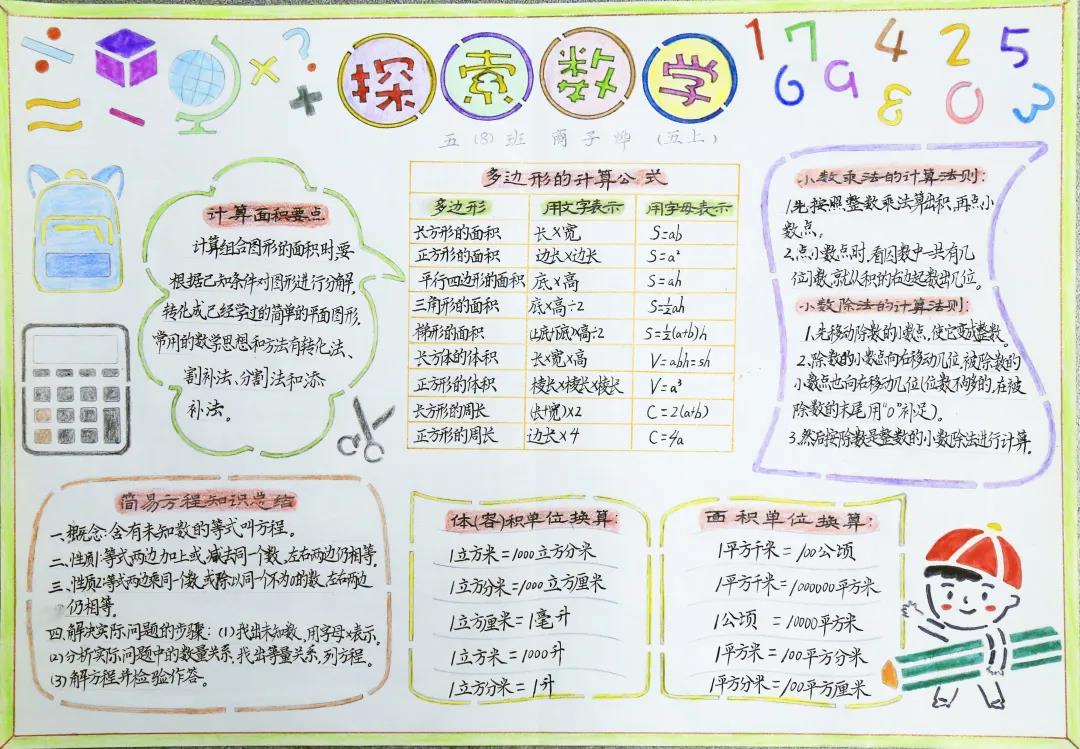 探索数学
1 7 6 9 4 2 5 3 0 3
五(8)班 商子烨 (五上)
计算面积要点
计算组合图形的面积时,要
根据已知条件对图形进行分解,
转化成已经学过的简单的平面图形,
常用的数学思想和方法有转化法、
割补法、分割法和添
补法。
多边形的计算公式
多边形 用文字表示 用字母表示
长方形的面积 长×宽 S=ab
正方形的面积 边长×边长 S=a²
平行四边形的面积 底×高 S=ah
三角形的面积 底×高÷2 S=½ah
梯形的面积 (上底+下底)×高÷2 S=½(a+b)h
长方体的体积 长×宽×高 V=abh=sh
正方形的体积 棱长×棱长×棱长 V=a³
长方形的周长 (长+宽)×2 C=2(a+b)
正方形的周长 边长×4 C=4a
小数乘法的计算法则:
1.先按照整数乘法算出积,再点小
数点。
2.点小数点时,看因数中一共有几
位小数,就从积的右边起数出几位。
小数除法的计算法则:
1.先移动除数的小数点,使它变成整数。
2.除数的小数点向右移动几位,被除数的
小数点也向右移动几位(位数不够的,在被
除数的末尾用“0”补足)。
3.然后按除数是整数的小数除法进行计算.
简易方程知识总结
一.概念:含有未知数的等式叫方程。
二、性质1:等式两边加上或减去同一个数,左右两边仍相等.
三、性质2:等式两边乘同一个数,或除以同一个不为0的数,左右两边
仍相等。
四.解决实际问题的步骤:(1)找出未知数,用字母x表示。
(2)分析实际问题中的数量关系,找出等量关系,列方程。
(3)解方程并检验作答。
体(容)积单位换算:
1立方米=1000立方分米
1立方分米=1000立方厘米
1立方厘米=1毫升
1立方米=1000升
1立方分米=1升
面积单位换算:
1平方千米=100公顷
1平方千米=1000000平方米
1公顷=10000平方米
1平方米=100平方分米
1平方分米=100平方厘米